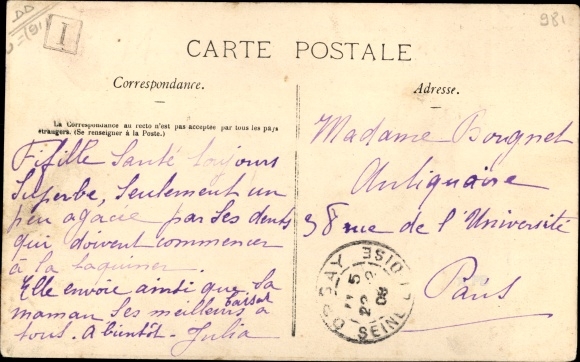 DD
981
I
CARTE POSTALE
Correspondance.
Adresse.
La Correspondance au recto n'est pas acceptée par tous les pays
étrangers. (Se renseigner à la Poste.)
Fifille santé toujours
superbe, seulement un
peu agacée par ses dents
qui doivent commencer
à la taquiner.
Elle envoie ainsi que sa
maman ses meilleurs baisers à
tous. a bientôt - Julia
Madame Bougnet
Antiquaire
38 rue de l'Université
Paris
ORSAY
5
22
08
SEINE ET OISE